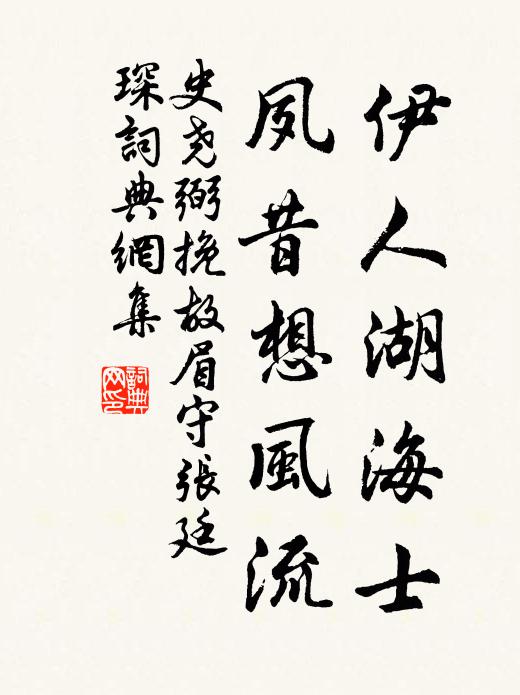 伊人湖海士
夙昔想風流
史尧弼挽故眉守張廷
琛詞典網集
詞典网印